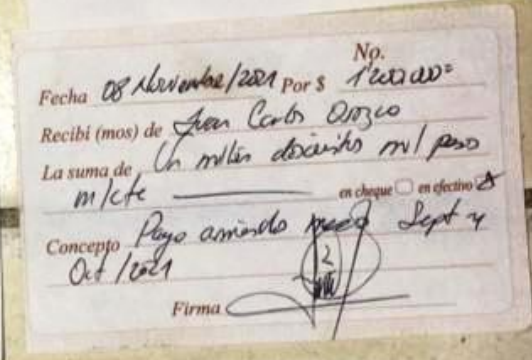 No.
Fecha 08 Noviembre/2021 Por $ 1'200.000=
Recibí (mos) de Juan Carlos Orozco
La suma de Un millón doscientos mil peso
m/cte en cheque en efectivo X
Concepto Pago arriendo Sept y
Oct /2021
Firma